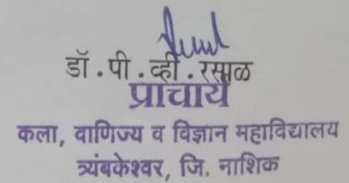 डॉ . पी . व्ही . रसाळ
प्राचार्य
कला, वाणिज्य व विज्ञान महाविद्यालय
त्र्यंबकेश्वर, जि. नाशिक